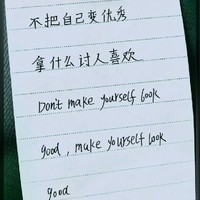 不把自己变优秀
拿什么讨人喜欢
Don't make yourself look
good, make yourself look
good